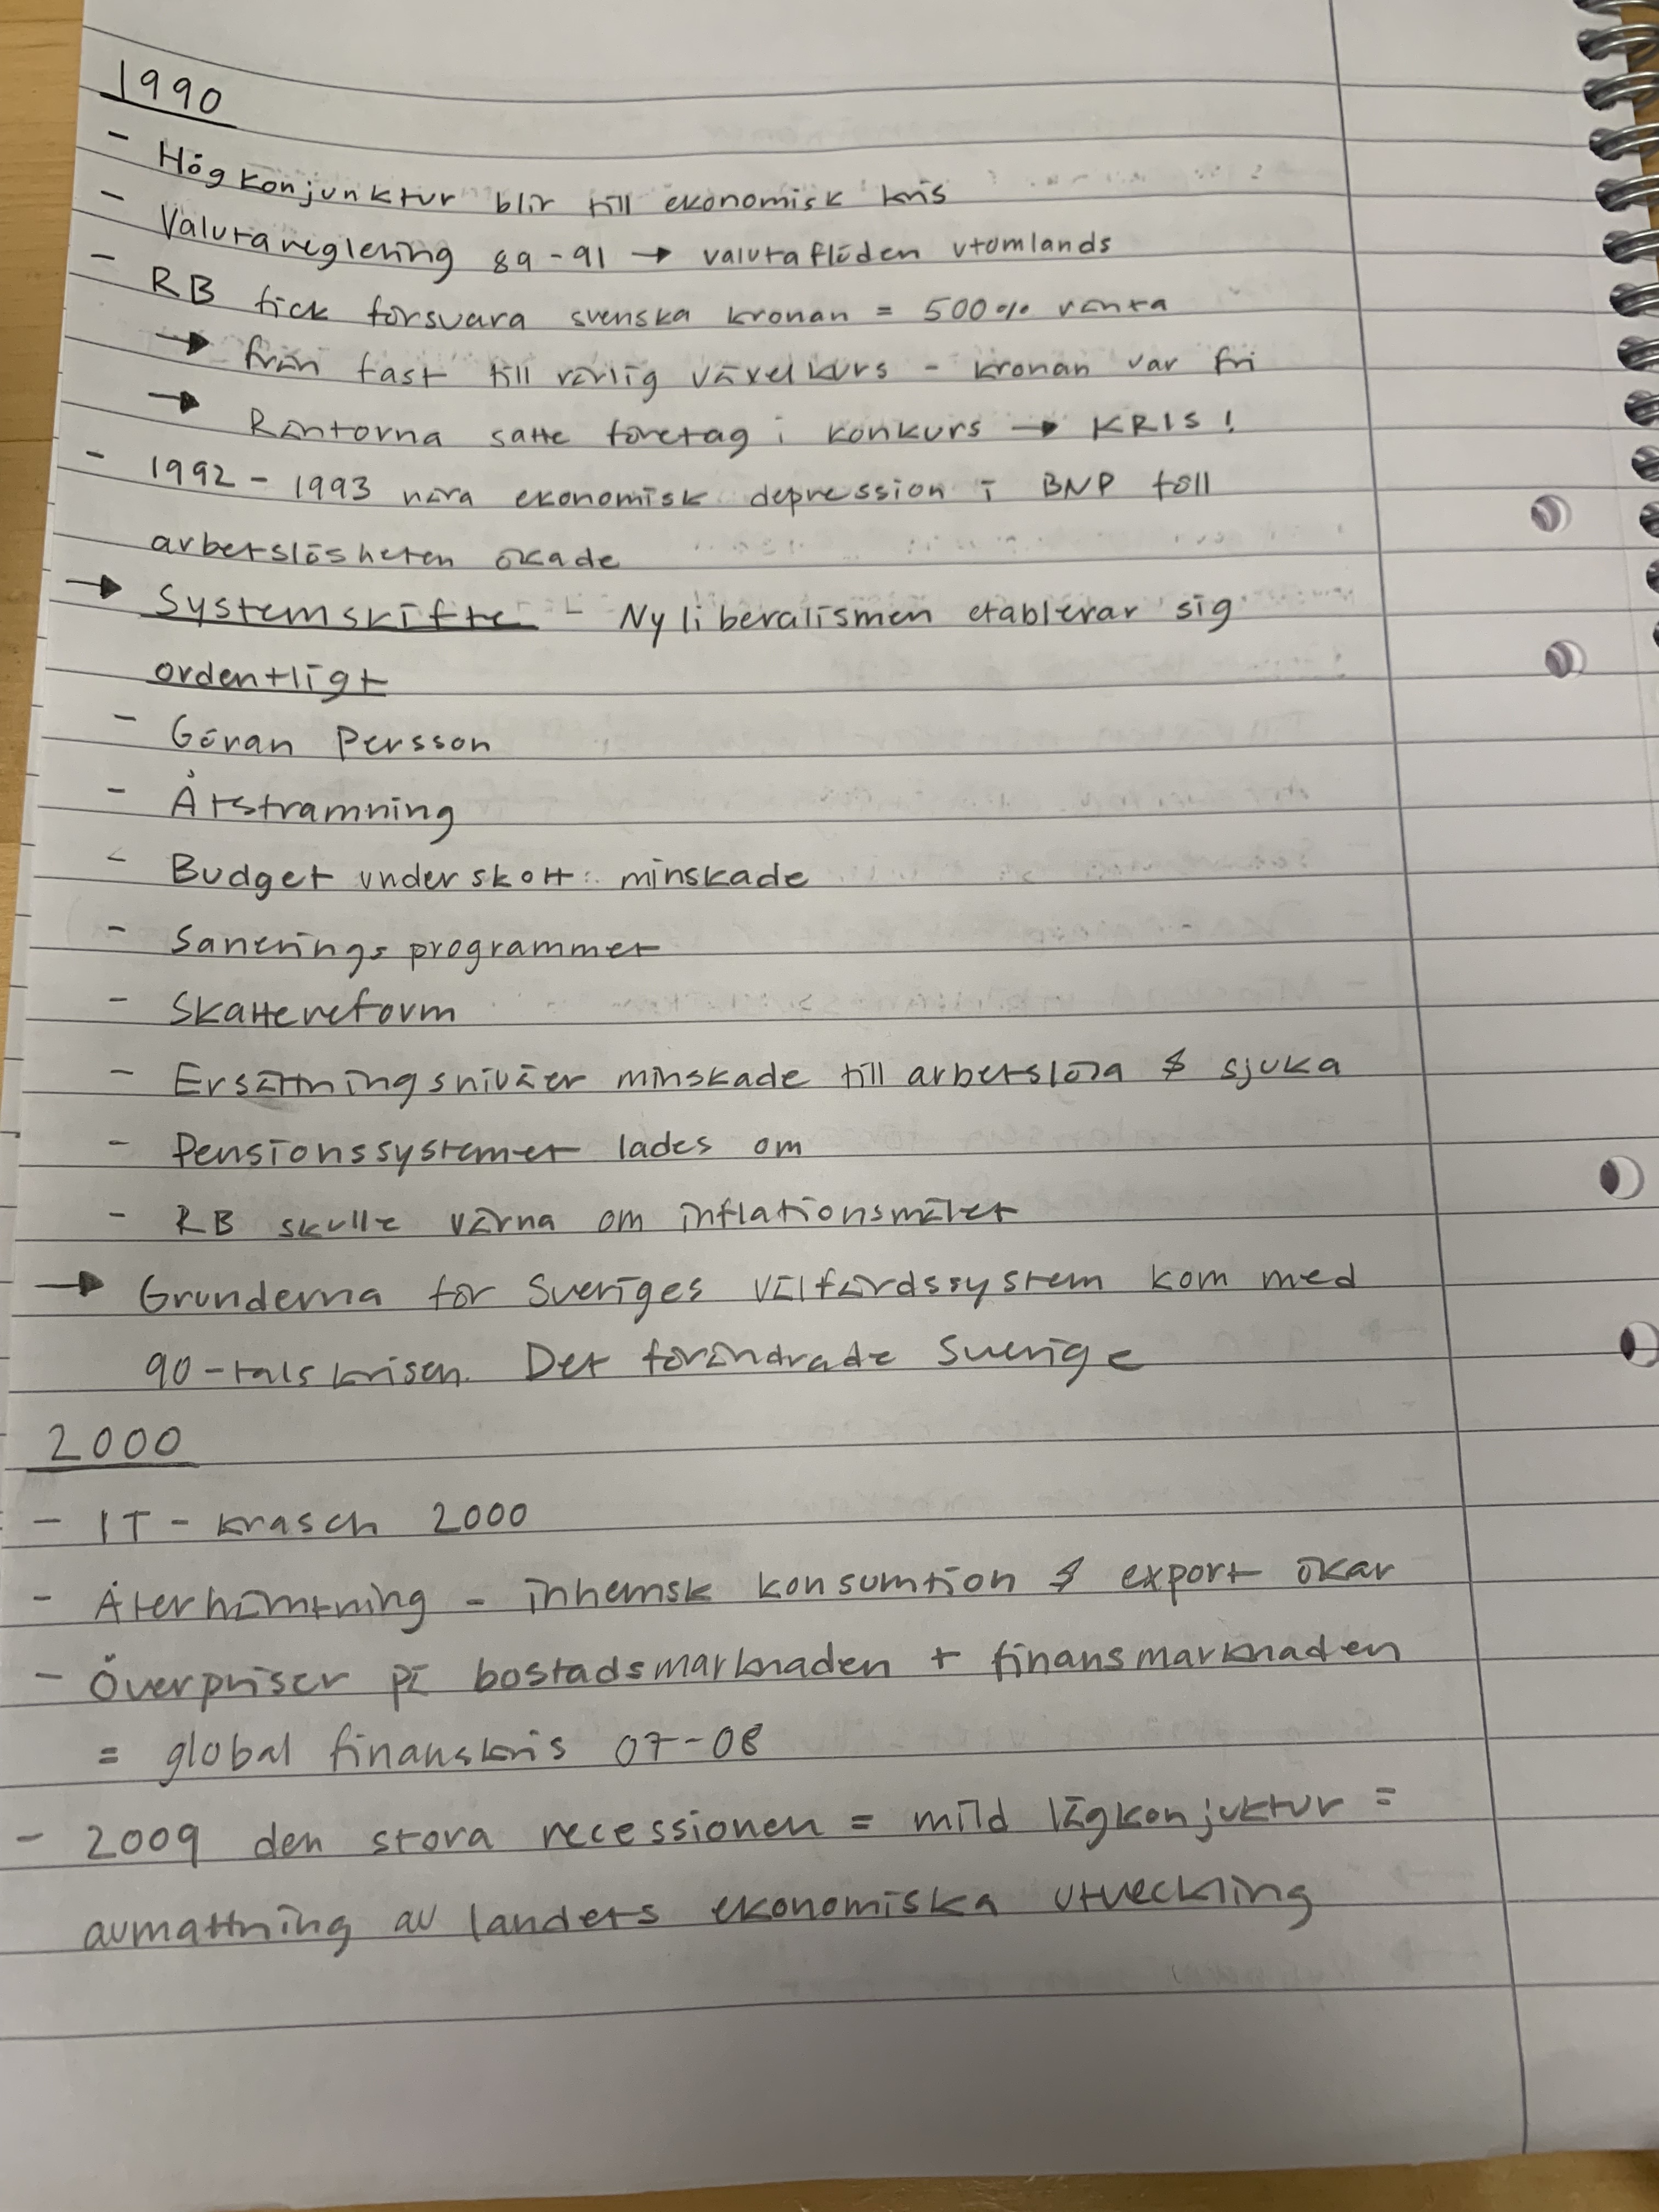 1990
- Högkonjunktur blir till ekonomisk kris
- Valutareglering 89-91 → valutaflöden utomlands
- RB fick försvara svenska kronan = 500% ränta
→ från fast till rörlig växelkurs - kronan var fri
→ Räntorna satte företag i konkurs → KRIS!
- 1992 - 1993 nära ekonomisk depression i BNP föll
arbetslösheten ökade
→ Systemskifte - Nyliberalismen etablerar sig
ordentligt
- Göran Persson
- Åtstramning
- Budget underskott minskade
- Saneringsprogrammet
- Skattereform
- Ersättningsnivåer minskade till arbetslösa & sjuka
- Pensionssystemet lades om
- RB skulle värna om inflationsmålet
→ Grunderna för Sveriges välfärdssystem kom med
90-talskrisen. Det förändrade Sverige
2000
- IT-krasch 2000
- Återhämtning - inhemsk konsumtion & export ökar
- Överpriser på bostadsmarknaden + finansmarknaden
= global finanskris 07-08
- 2009 den stora recessionen = mild lågkonjuktur =
avmattning av landets ekonomiska utveckling